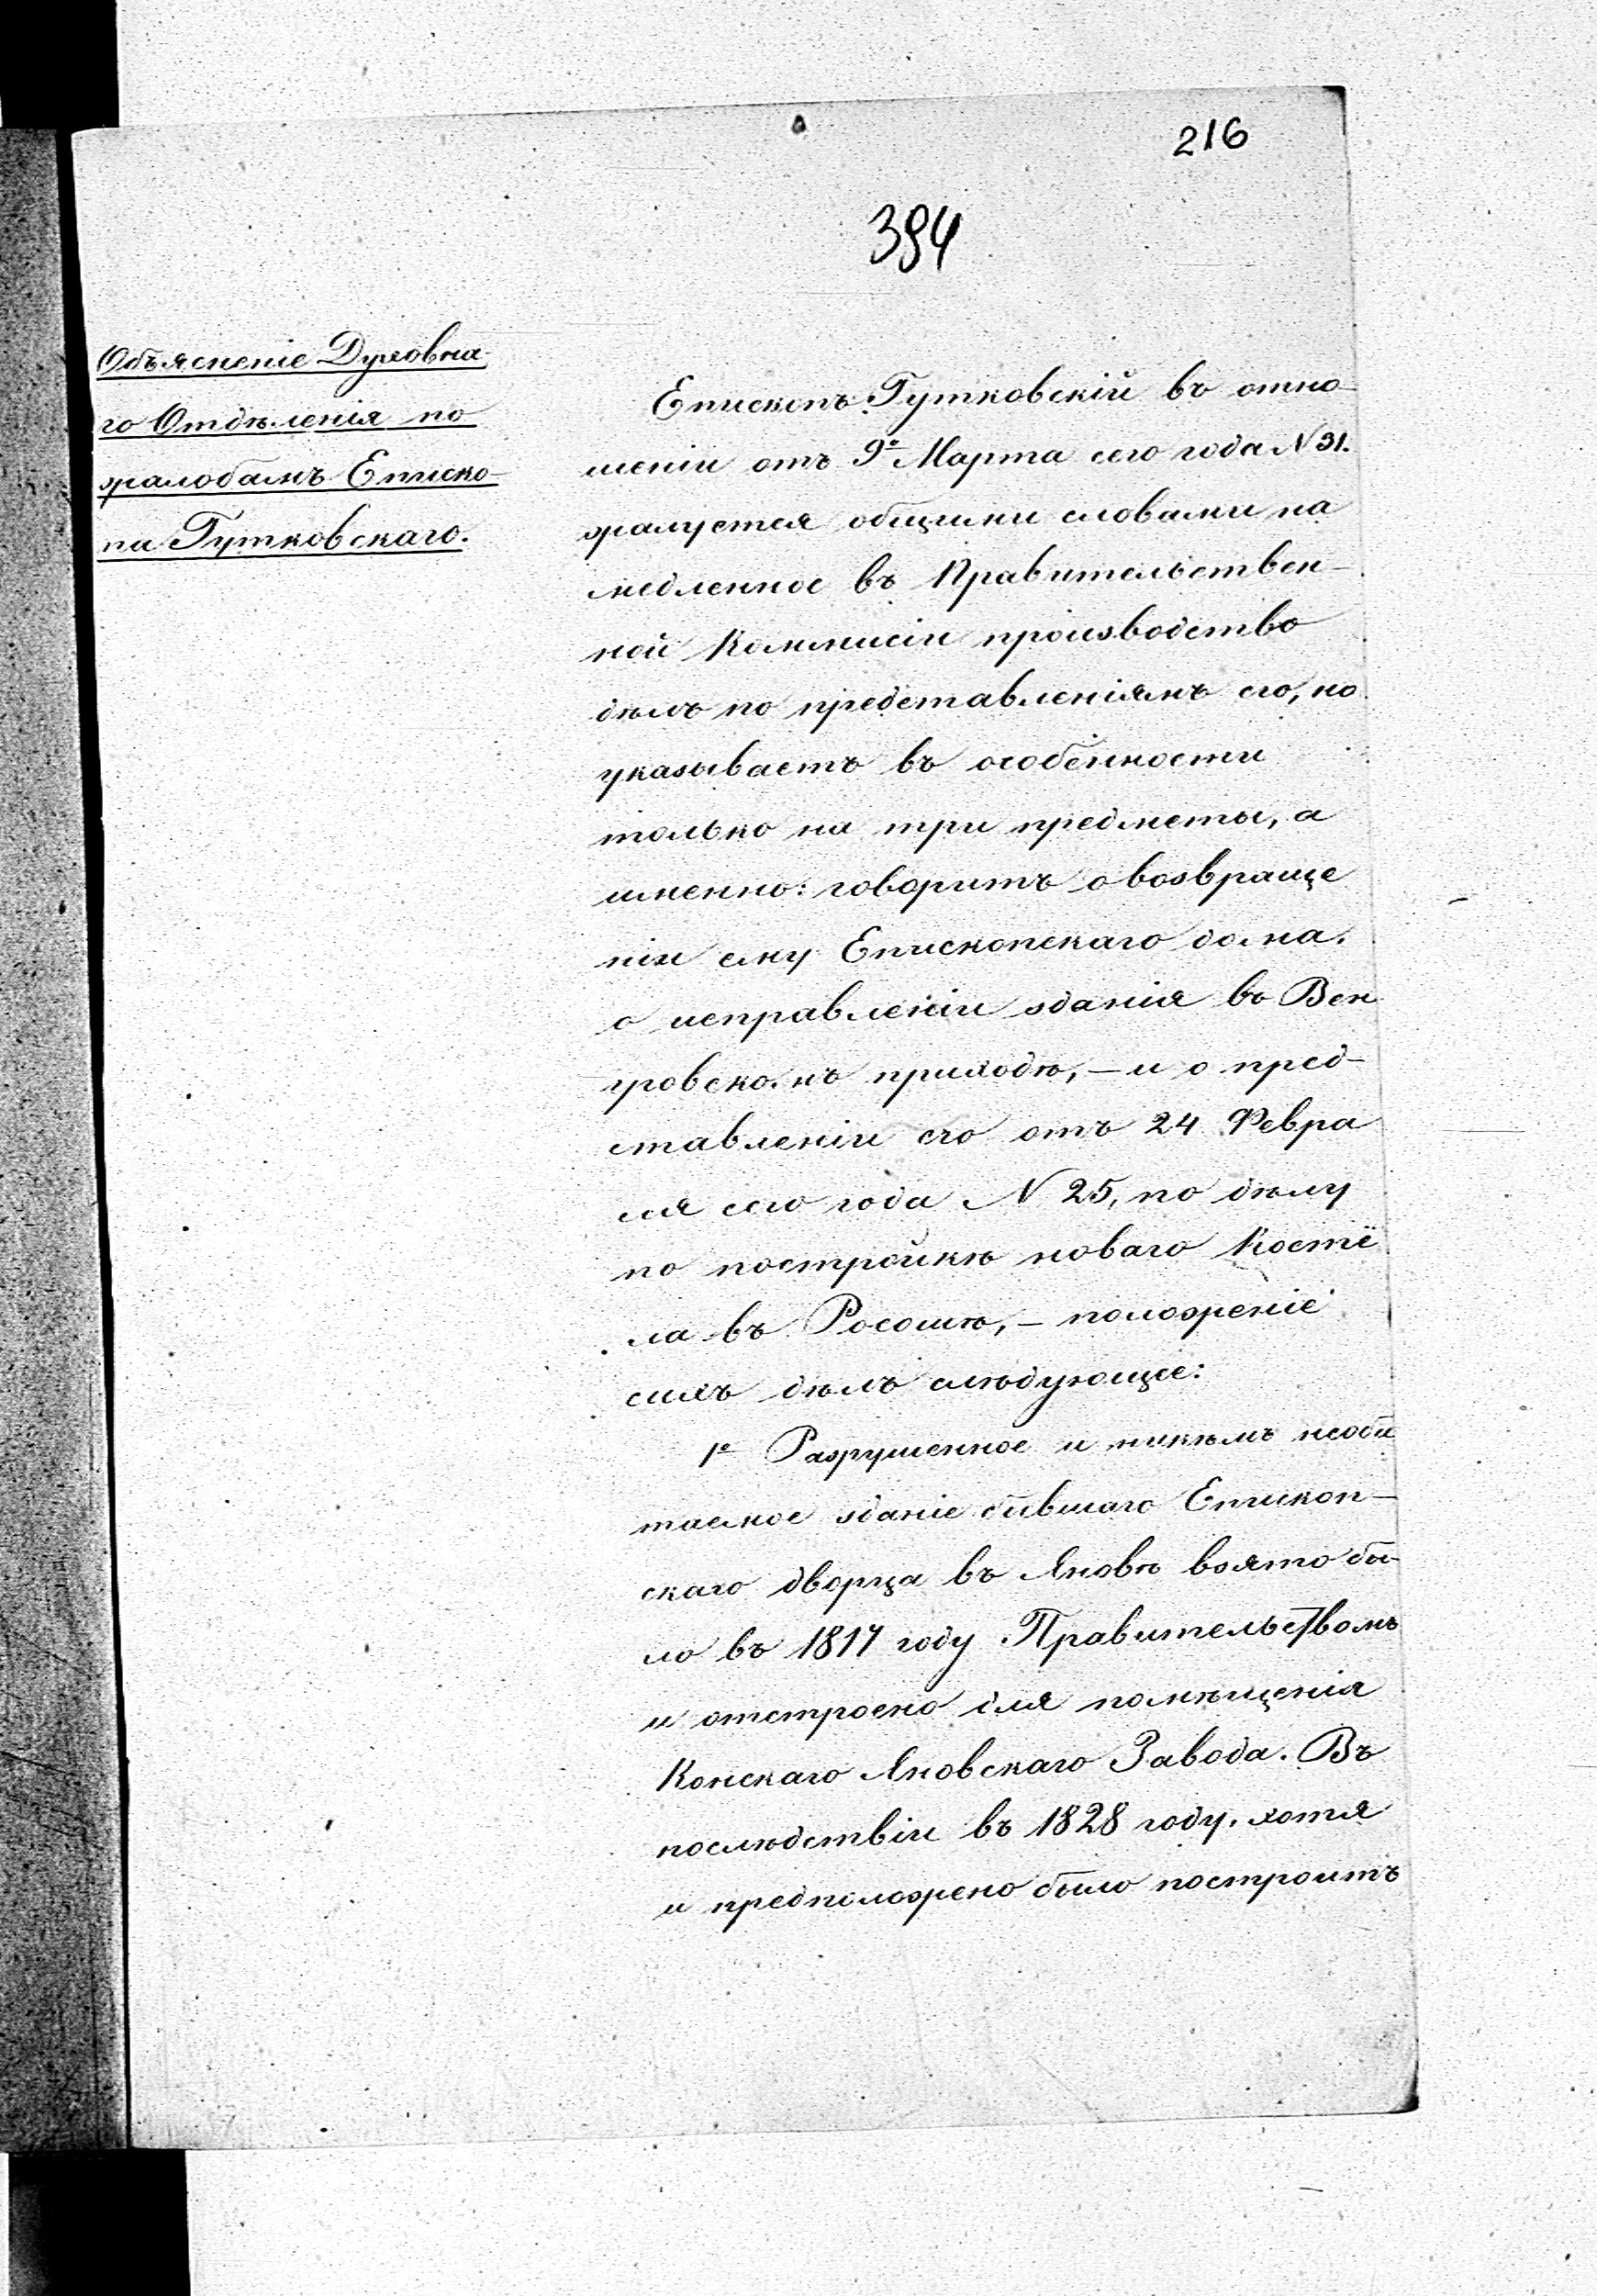 216
394
Объясненіе Духовна-
го Отдѣленія по
жалобамъ Еписко-
па Гутковскаго.
Епископъ Гутковскій въ отно-
шеніи отъ 9º Марта сего года N 31.
жалуется общими словами на
медленное въ Правительствен-
ной Коммисіи производство
дѣлъ по представленіямъ его, но
указываетъ въ особенности
только на три предметы, а
именно: говоритъ о возвраще
ніи ему Епископскаго дома.
о исправленіи зданія въ Вен
гровскомъ приходѣ, – и о пред-
ставленіи его отъ 24 Февра
ля сего года N 25, по дѣлу
по постройкѣ новаго Костё
ла въ Росошѣ, – положеніе
сихъ дѣлъ слѣдующее:
1º Разрушенное и никѣмъ необи
таемое зданіе бывшаго Епископ-
скаго дворца въ Яновѣ взято бы-
ло въ 1817 году Правительствомъ
и отстроено для помѣщенія
Конскаго Яновскаго Завода. Въ
послѣдствіи въ 1828 году, хотя
и предположено было построить